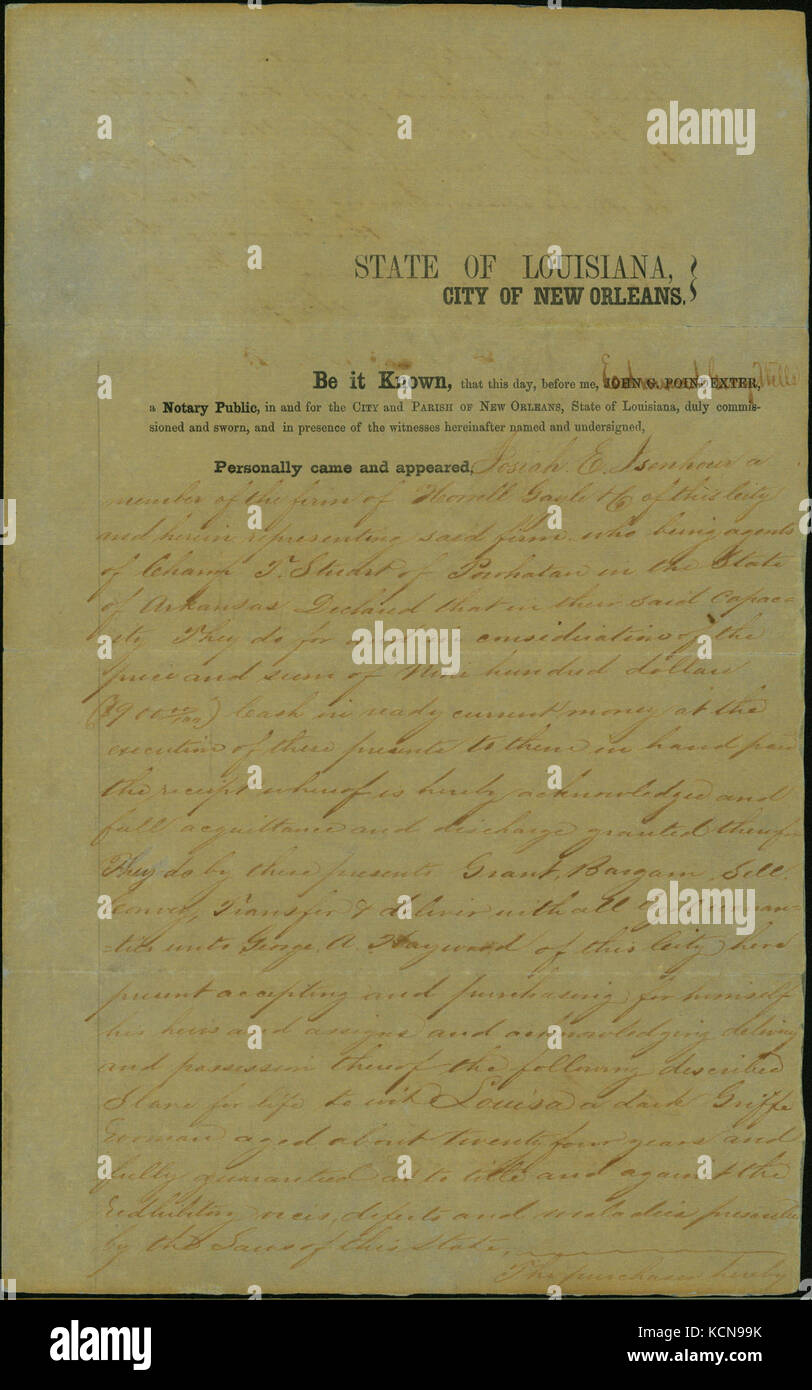 STATE OF LOUISIANA,
CITY OF NEW ORLEANS.
Be it Known, that this day, before me, JOHN G. POINDEXTER,
a Notary Public, in and for the CITY and PARISH OF NEW ORLEANS, State of Louisiana, duly commis-
sioned and sworn, and in presence of the witnesses hereinafter named and undersigned,
Personally came and appeared, Josiah E. Isenhour a
member of the firm of Horrell Gayle & Co of this City
and herein representing said firm who being agents
of Champ T. Stuart of Powhatan in the State
of Arkansas Declared that in their said Capac-
ity They do for and in consideration of the
price and sum of Nine hundred dollars
($900 00/100) Cash in ready current money at the
execution of these presents to them in hand paid
the receipt whereof is hereby acknowledged and
full acquittance and discharge granted therefor
They do by these presents Grant, Bargain, Sell
Convey, Transfer & deliver with all
unto George A. Hayward of this City here
present accepting and purchasing for himself
his heirs and assigns and acknowledging delivery
and possession thereof the following described
Slave for life to wit Louisa a dark Griffe
woman aged about twenty four years and
fully guarantied as to title and against the
Redhibitory vices, defects and maladies prescribed
by the Laws of this State,
The purchaser hereby
alamy
Image ID: KCN99K
www.alamy.com